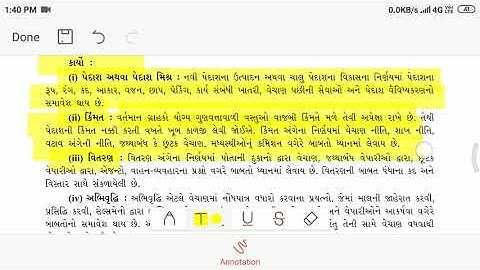 1:40 PM
0.0KB/s 4G 41
Done
કાર્યો :
(i) પેદાશ અથવા પેદાશ મિશ્ર : નવી પેદાશના ઉત્પાદન અથવા ચાલુ પેદાશના વિકાસના નિર્ણયમાં પેદાશના
રૂપ, રંગ, કદ, આકાર, વજન, છાપ, પેકિંગ, કાર્ય સંબંધી ખાતરી, વેચાણ પછીની સેવાઓ અને પેદાશ વૈવિધ્યકરણનો
સમાવેશ થાય છે.
(ii) કિંમત : વર્તમાન ગ્રાહકો યોગ્ય ગુણવત્તાવાળી વસ્તુઓ વાજબી કિંમતે મળે તેવી અપેક્ષા રાખે છે. તેથી
પેદાશની કિંમત નક્કી કરતી વખતે ખૂબ કાળજી લેવી જોઈએ. કિંમત અંગેના નિર્ણયમાં વેચાણ નીતિ, શાખ નીતિ,
વટાવ અંગેની નીતિ, જથ્થાબંધ કે છૂટક વેચાણ, મધ્યસ્થીઓનું કમિશન વગેરે બાબતો ધ્યાનમાં લેવાય છે.
(iii) વિતરણ : વિતરણ અંગેના નિર્ણયમાં પોતાની દુકાનો દ્વારા વેચાણ, જથ્થાબંધ વેપારીઓ દ્વારા, છૂટક
વેપારીઓ દ્વારા, એજન્ટો, વાહન-વ્યવહારના પ્રશ્નો વગેરે બાબતો ધ્યાનમાં લેવાય છે. વિતરણની બાબત ધંધાના કદ અને
વિસ્તાર સાથે સંકળાયેલી છે.
(iv) અભિવૃદ્ધિ : અભિવૃદ્ધિ એટલે વેચાણમાં નોંધપાત્ર વધારો કરવાના પ્રયત્નો. જેમાં માલની જાહેરાત કરવી,
પ્રસિદ્ધિ કરવી, સેલ્સમેનો દ્વારા અને વેપારીઓને આકર્ષવા વગેરે
બાબતોનો સમાવેશ થાય છે. તેની સામે વેચાણ વધવાથી
Annotation